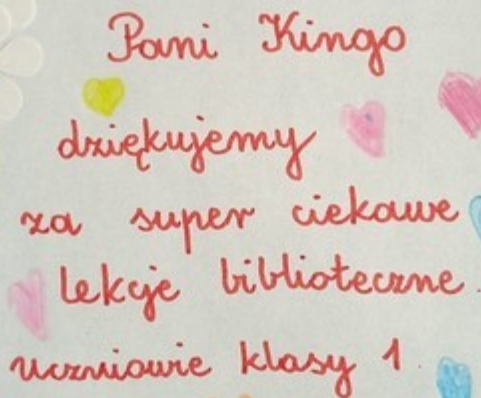 Pani Kingo
dziękujemy
za super ciekawe
lekcje biblioteczne.
uczniowie klasy 1.